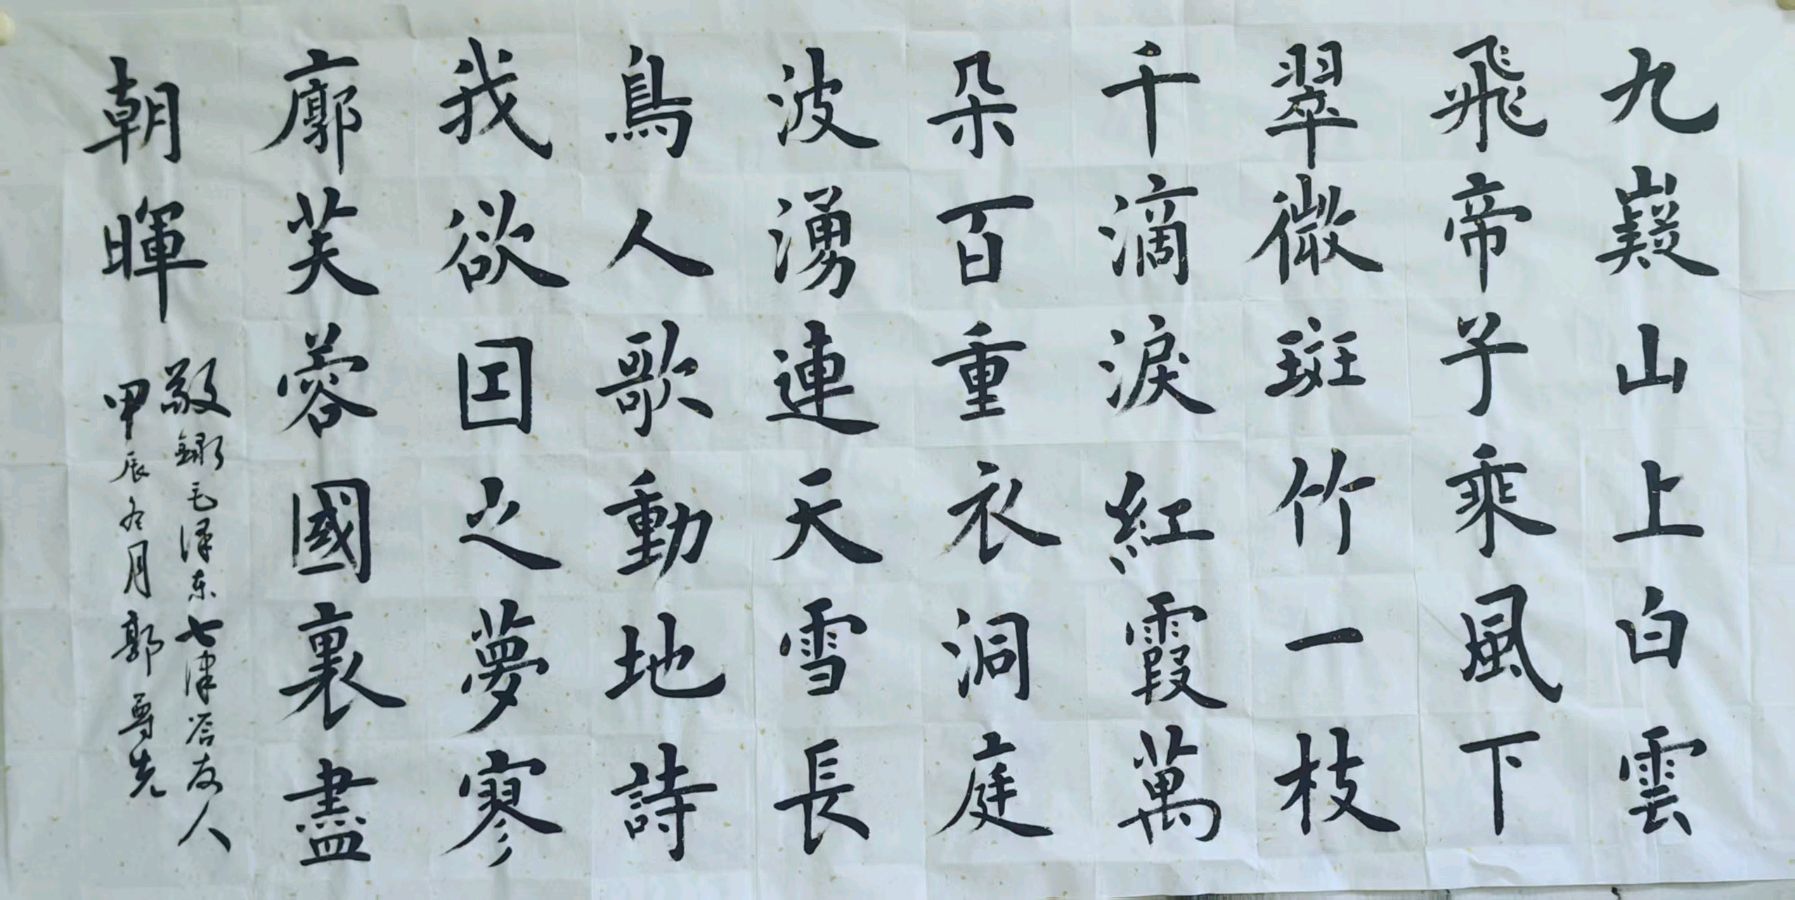 九嶷山上白雲
飛帝子乘風下
翠微斑竹一枝
千滴淚紅霞萬
朵百重衣洞庭
波湧連天雪長
島人歌動地詩
我欲因之夢寥
廓芙蓉國裏盡
朝暉
敬錄毛泽东七律答友人
甲辰冬月郭尊先